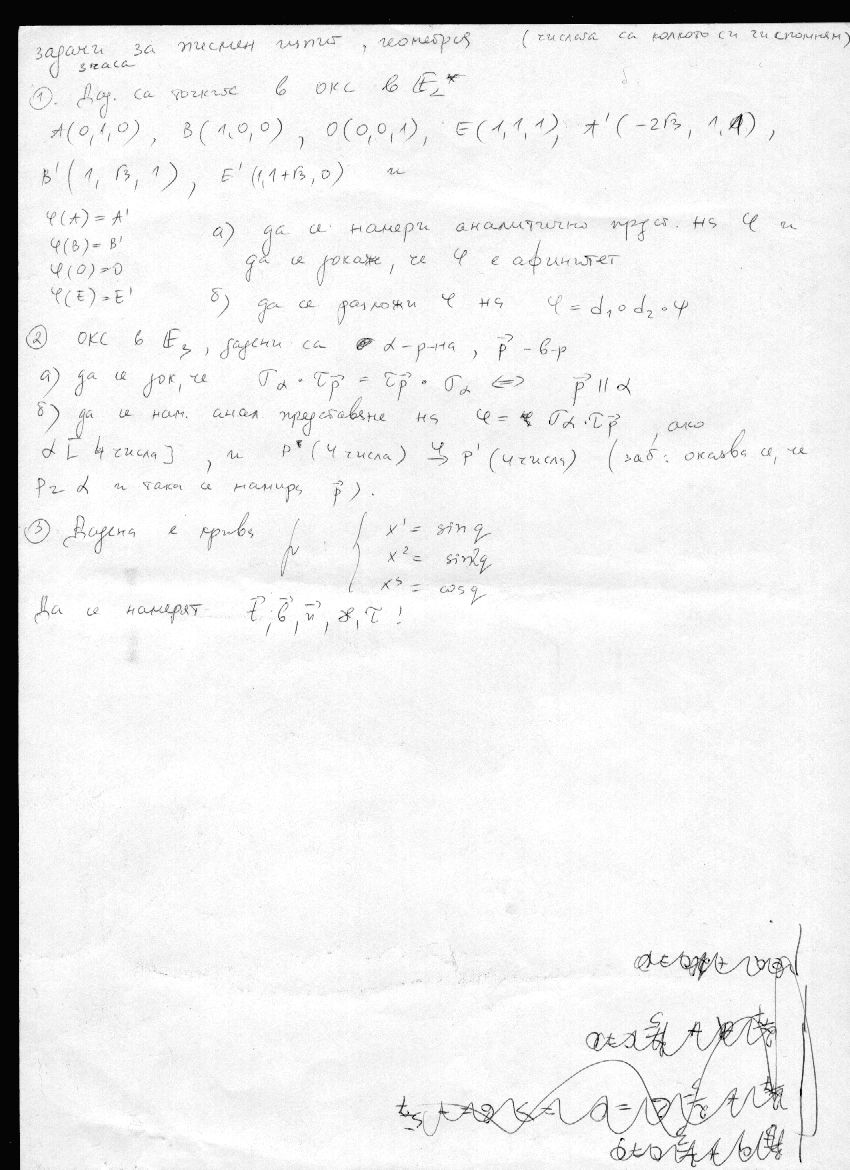 задачи за писмен изпит, геометрия (числата са колкото си ги спомням)
3 часа
①. Дад. са точките в ОКС в E₂*
A(0,1,0), B(1,0,0), O(0,0,1), E(1,1,1), A'(-2√3, 1, 1),
B'(1, √3, 1), E'(1,1+√3,0) и
φ(A) = A'
φ(B) = B'
φ(O) = O
φ(E) = E'
а) да се намери аналитично предст. на φ и
да се докаж, че φ е афинитет
б) да се разложи φ на φ = d₁ ∘ d₂ ∘ ψ
② ОКС в E₃, дадени са α - р-на, p⃗ - в-р
а) да се док, че σα · τp⃗ = τp⃗ · σα ⇔ p⃗ ∥ α
б) да се нам. анал представяне на φ = σα · τp⃗, ако
α[4 числа], и P (4 числа) →φ P' (4 числа) (заб: оказва се, че
P z α и така се намира p⃗).
③ Дадена е крива { x¹ = sin q
x² = sin²q
x³ = cos q
Да се намерят t⃗, b⃗, n⃗, ϰ, τ !